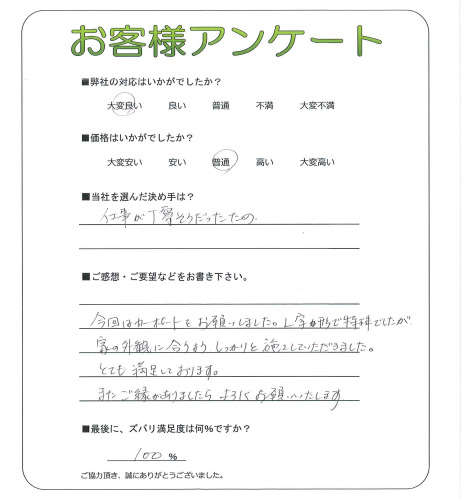 お客様アンケート
■弊社の対応はいかがでしたか？
大変良い 良い 普通 不満 大変不満
■価格はいかがでしたか？
大変安い 安い 普通 高い 大変高い
■当社を選んだ決め手は？
仕事が丁寧そうだったため
■ご感想・ご要望などをお書き下さい。
今回はカーポートをお願いしました。L字形で特殊でしたが
家の外観に合うよう しっかりと施工していただきました。
とても満足しております。
またご縁がありましたら よろしくお願いいたします
■最後に、ズバリ満足度は何%ですか？
100 %
ご協力頂き、誠にありがとうございました。